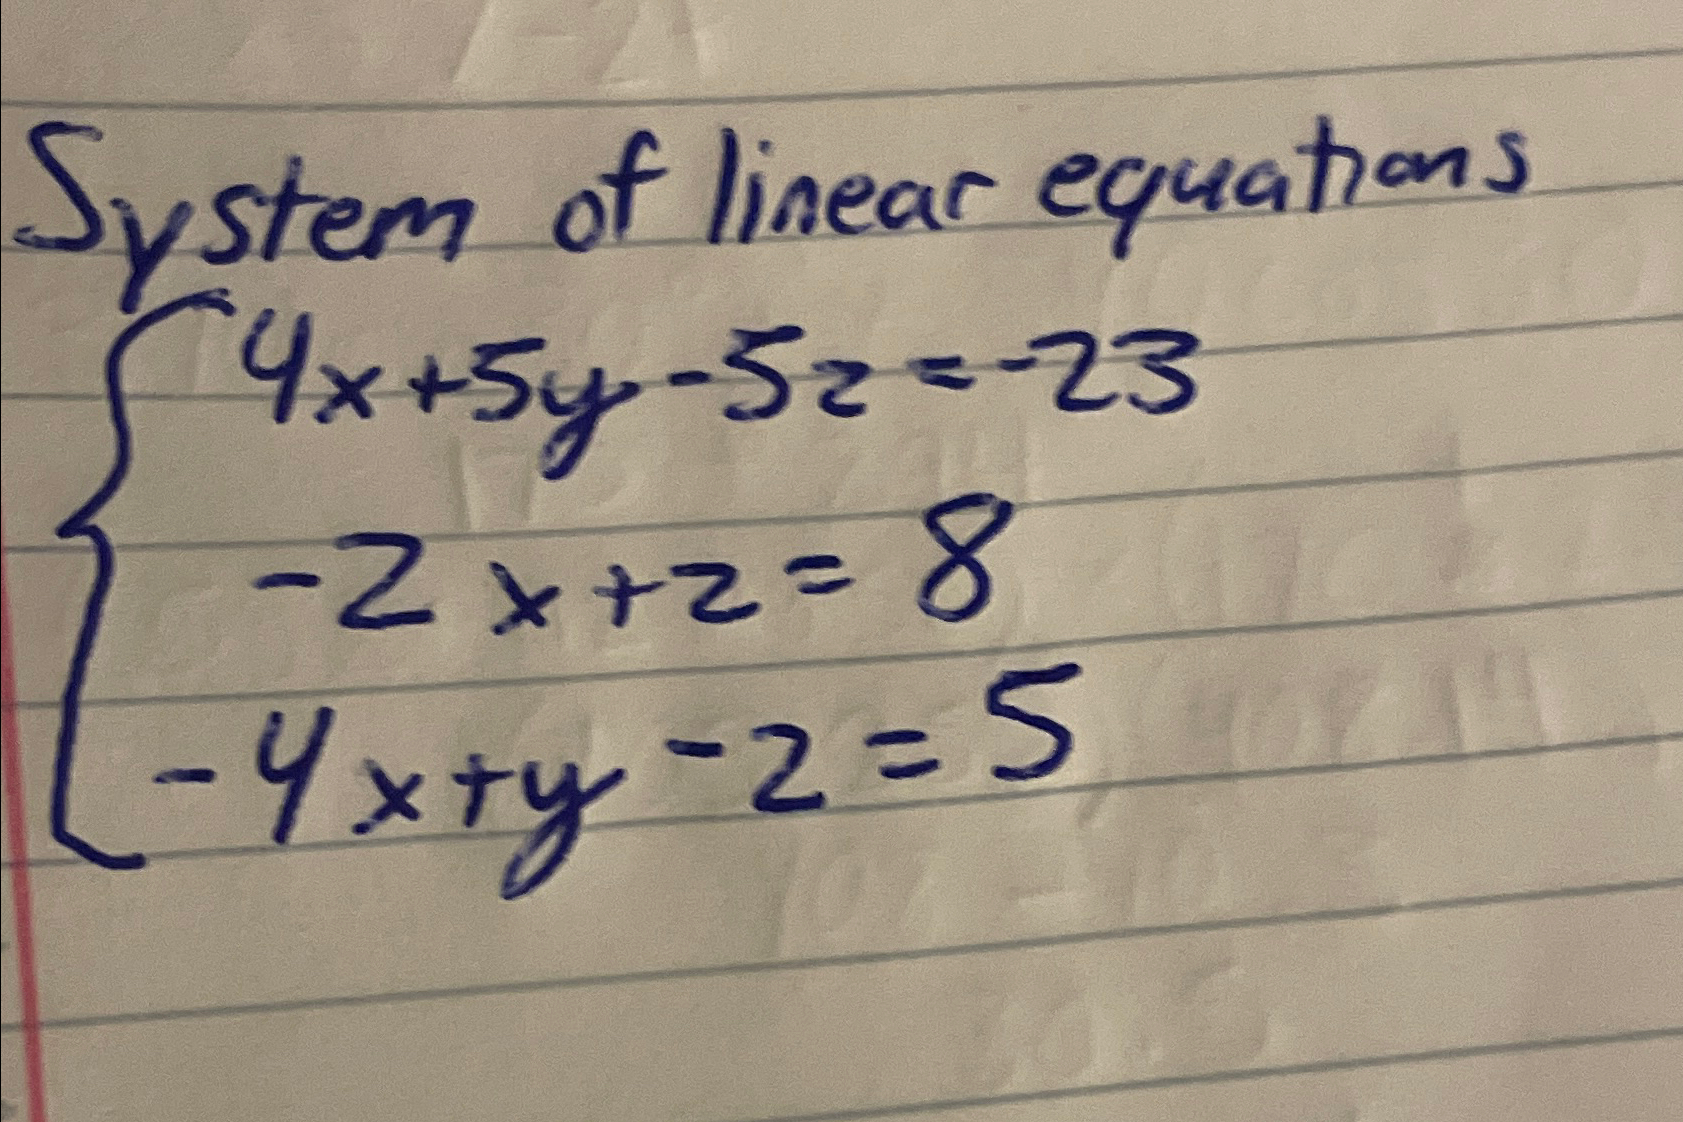 System of linear equations
4x+5y-5z=-23
-2x+z=8
-4x+y-z=5